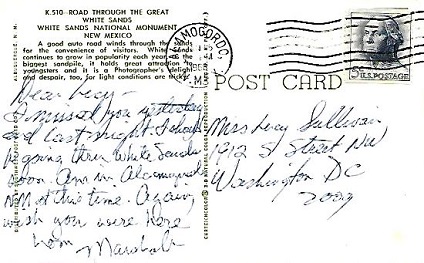 K-510—ROAD THROUGH THE GREAT
WHITE SANDS
WHITE SANDS NATIONAL MONUMENT
NEW MEXICO
A good auto road winds through the sands
for the convenience of visitors. White Sands
continues to grow in popularity each year, as the
biggest sandpile, it holds great attention to
youngsters and it is a Photographer's delight
and despair, too, for light conditions are tricky.
ALAMOGORDO,
U.S. POSTAGE
POST CARD
Dear Lucy—
I missed you yesterday
and last night. I should
be going thru White Sands
soon. Am in Alamogordo
NM at this time. Again,
wish you were here
Love
Marshall
Miss Lucy Sullivan
1912 S Street NW
Washington DC
20009